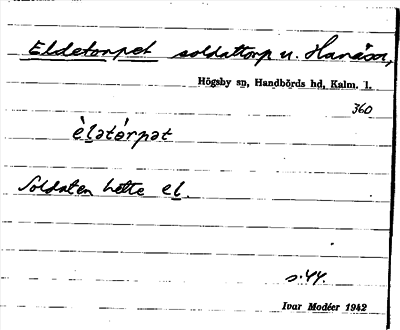 Eldetorpet soldattorp u. Hanåsa,
Högsby sn, Handbörds hd, Kalm. l.
360
è̀lətórpət
Soldaten hette el.
s. 44.
Ivar Modéer 1942